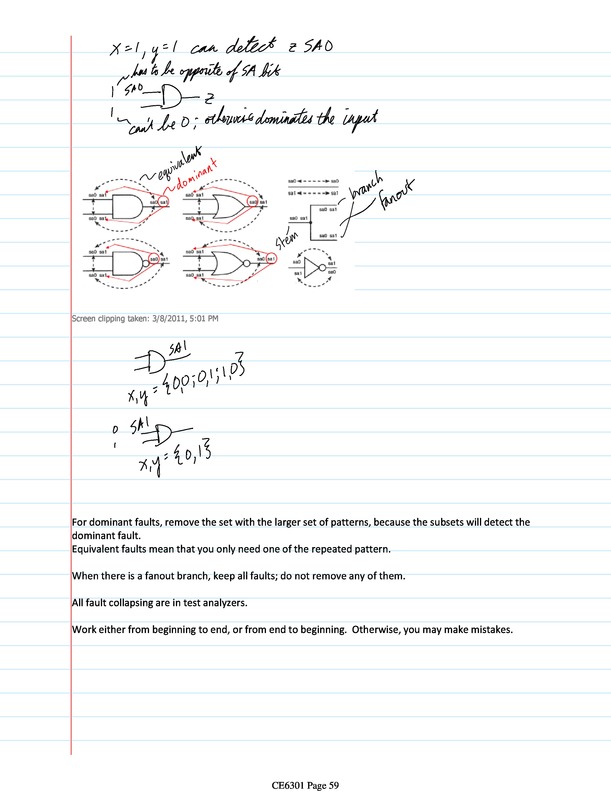 x=1, y=1 can detect z SA0
has to be opposite of SA bit
1 SA0 z
1
can't be 0; otherwise dominates the input
equivalent
dominant
sa0 sa0
sa1 sa1
branch
fanout
sa0 sa1 sa0 sa1 sa0 sa1
sa0 sa1 sa0 sa1 sa0 sa1 sa0 sa1
sa0 sa1 sa0 sa1
stem
sa0 sa1
sa0 sa1 sa0 sa1
sa0 sa1 sa0 sa1 sa0 sa0
sa0 sa1 sa0 sa1 sa1 sa1
Screen clipping taken: 3/8/2011, 5:01 PM
SA1
x,y = {0,0; 0,1; 1,0}
0 SA1
1
x,y = {0,1}
For dominant faults, remove the set with the larger set of patterns, because the subsets will detect the
dominant fault.
Equivalent faults mean that you only need one of the repeated pattern.
When there is a fanout branch, keep all faults; do not remove any of them.
All fault collapsing are in test analyzers.
Work either from beginning to end, or from end to beginning. Otherwise, you may make mistakes.
CE6301 Page 59